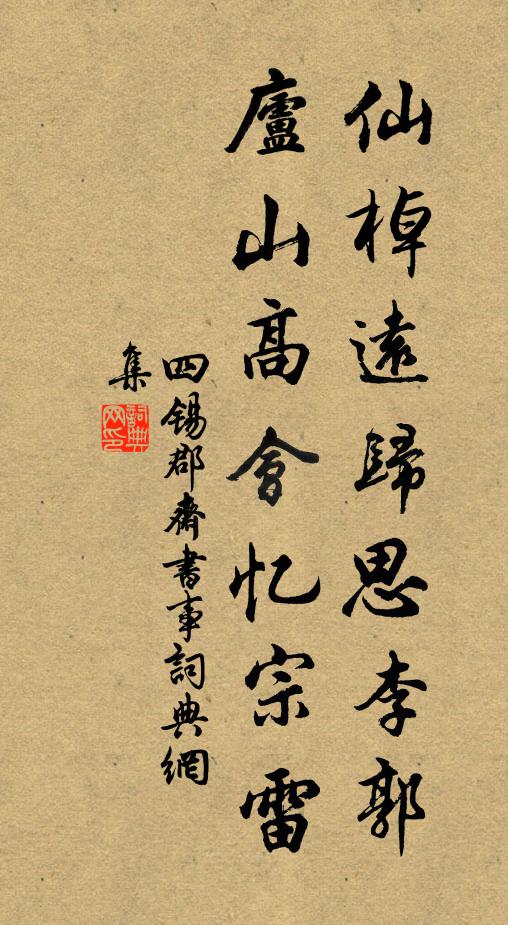 仙棹遠歸思李郭
廬山高會忆宗雷
四锡郡齋書事詞典網
集
詞典网印